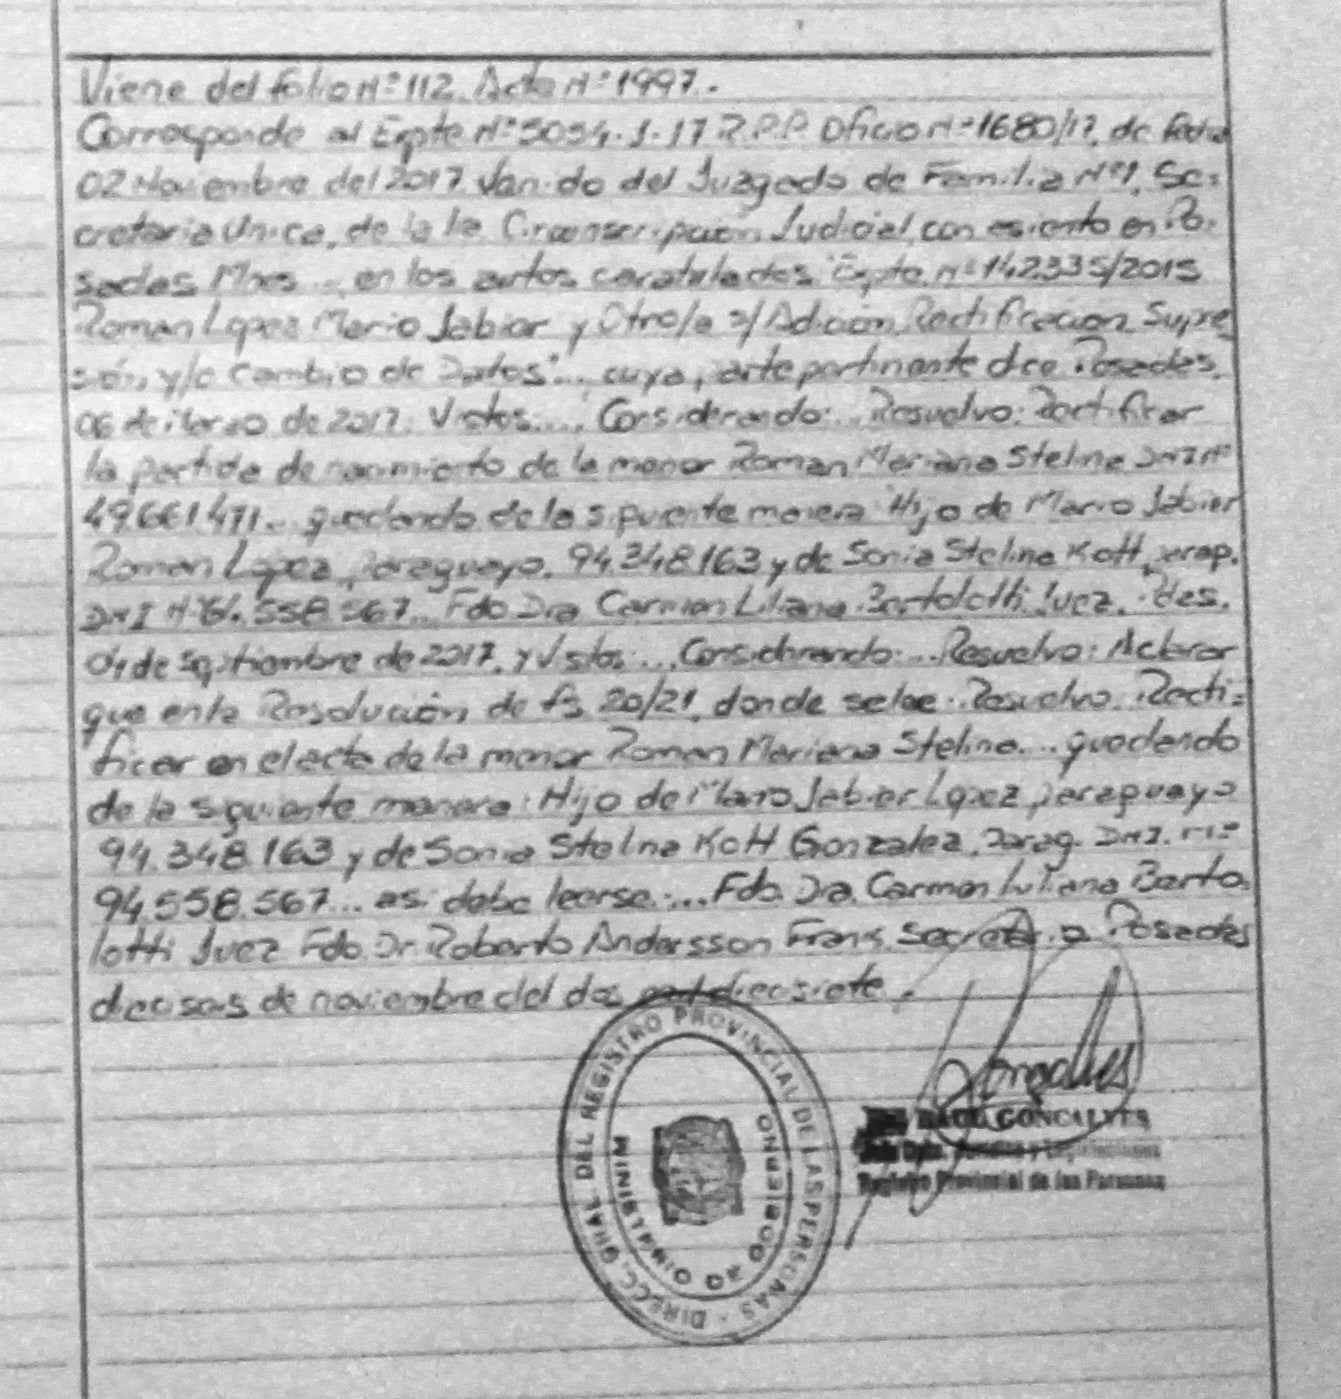 Viene del folio N° 112. Acta N° 1997.
Corresponde al Expte N° 5054. J-17 R.P.P. Oficio N° 1680/17, de fecha
02 Noviembre del 2017. Venido del Juzgado de Familia N° 1, Se-
cretaria Unica, de la 1a Circunscripción Judicial, con asiento en Po-
sadas Mnes... en los autos caratulados "Expte N° 142335/2015
Roman Lopez Mario Jabier y Otro/a s/ Adición, Rectificacion Supre
sión, y/o Cambio de Datos"... cuya parte pertinente dice Posadas,
06 de Marzo de 2017. Vistos:... Considerando:... Resuelvo: Rectificar
la partida de nacimiento de la menor Roman Mariana Stelina DNI N°
49.661.471... quedando de la siguiente manera Hijo de Mario Jabier
Roman Lopez, paraguayo. 94.348.163 y de Sonia Stelina Kott, parag.
DNI N° 558.567... Fdo Dra Carmen Liliana Bertolotti Juez. Pdas.
04 de Septiembre de 2017, y Vistos:... Considerando:... Resuelvo: Aclarar
que en la Resolución de fs 20/21, donde se lee: Resuelvo. Recti-
ficar en el acta de la menor Roman Mariana Stelina... quedando
de la siguiente manera: Hijo de Mario Jabier Lopez, paraguayo
94.348.163 y de Sonia Stelina Kott Gonzalez. Parag. DNI. N°
94.558.567... asi debe leerse:... Fdo. Dra. Carmen Liliana Berto-
lotti Juez Fdo. Dr. Roberto Andersson Frank Secretario Posadas
dieciseis de noviembre del dos mil diecisiete.
DIRECC. GRAL. DEL REGISTRO PROVINCIAL DE LAS PERSONAS
MINISTERIO DE GOBIERNO
RAUL GONCALVES
Registro Provincial de las Personas